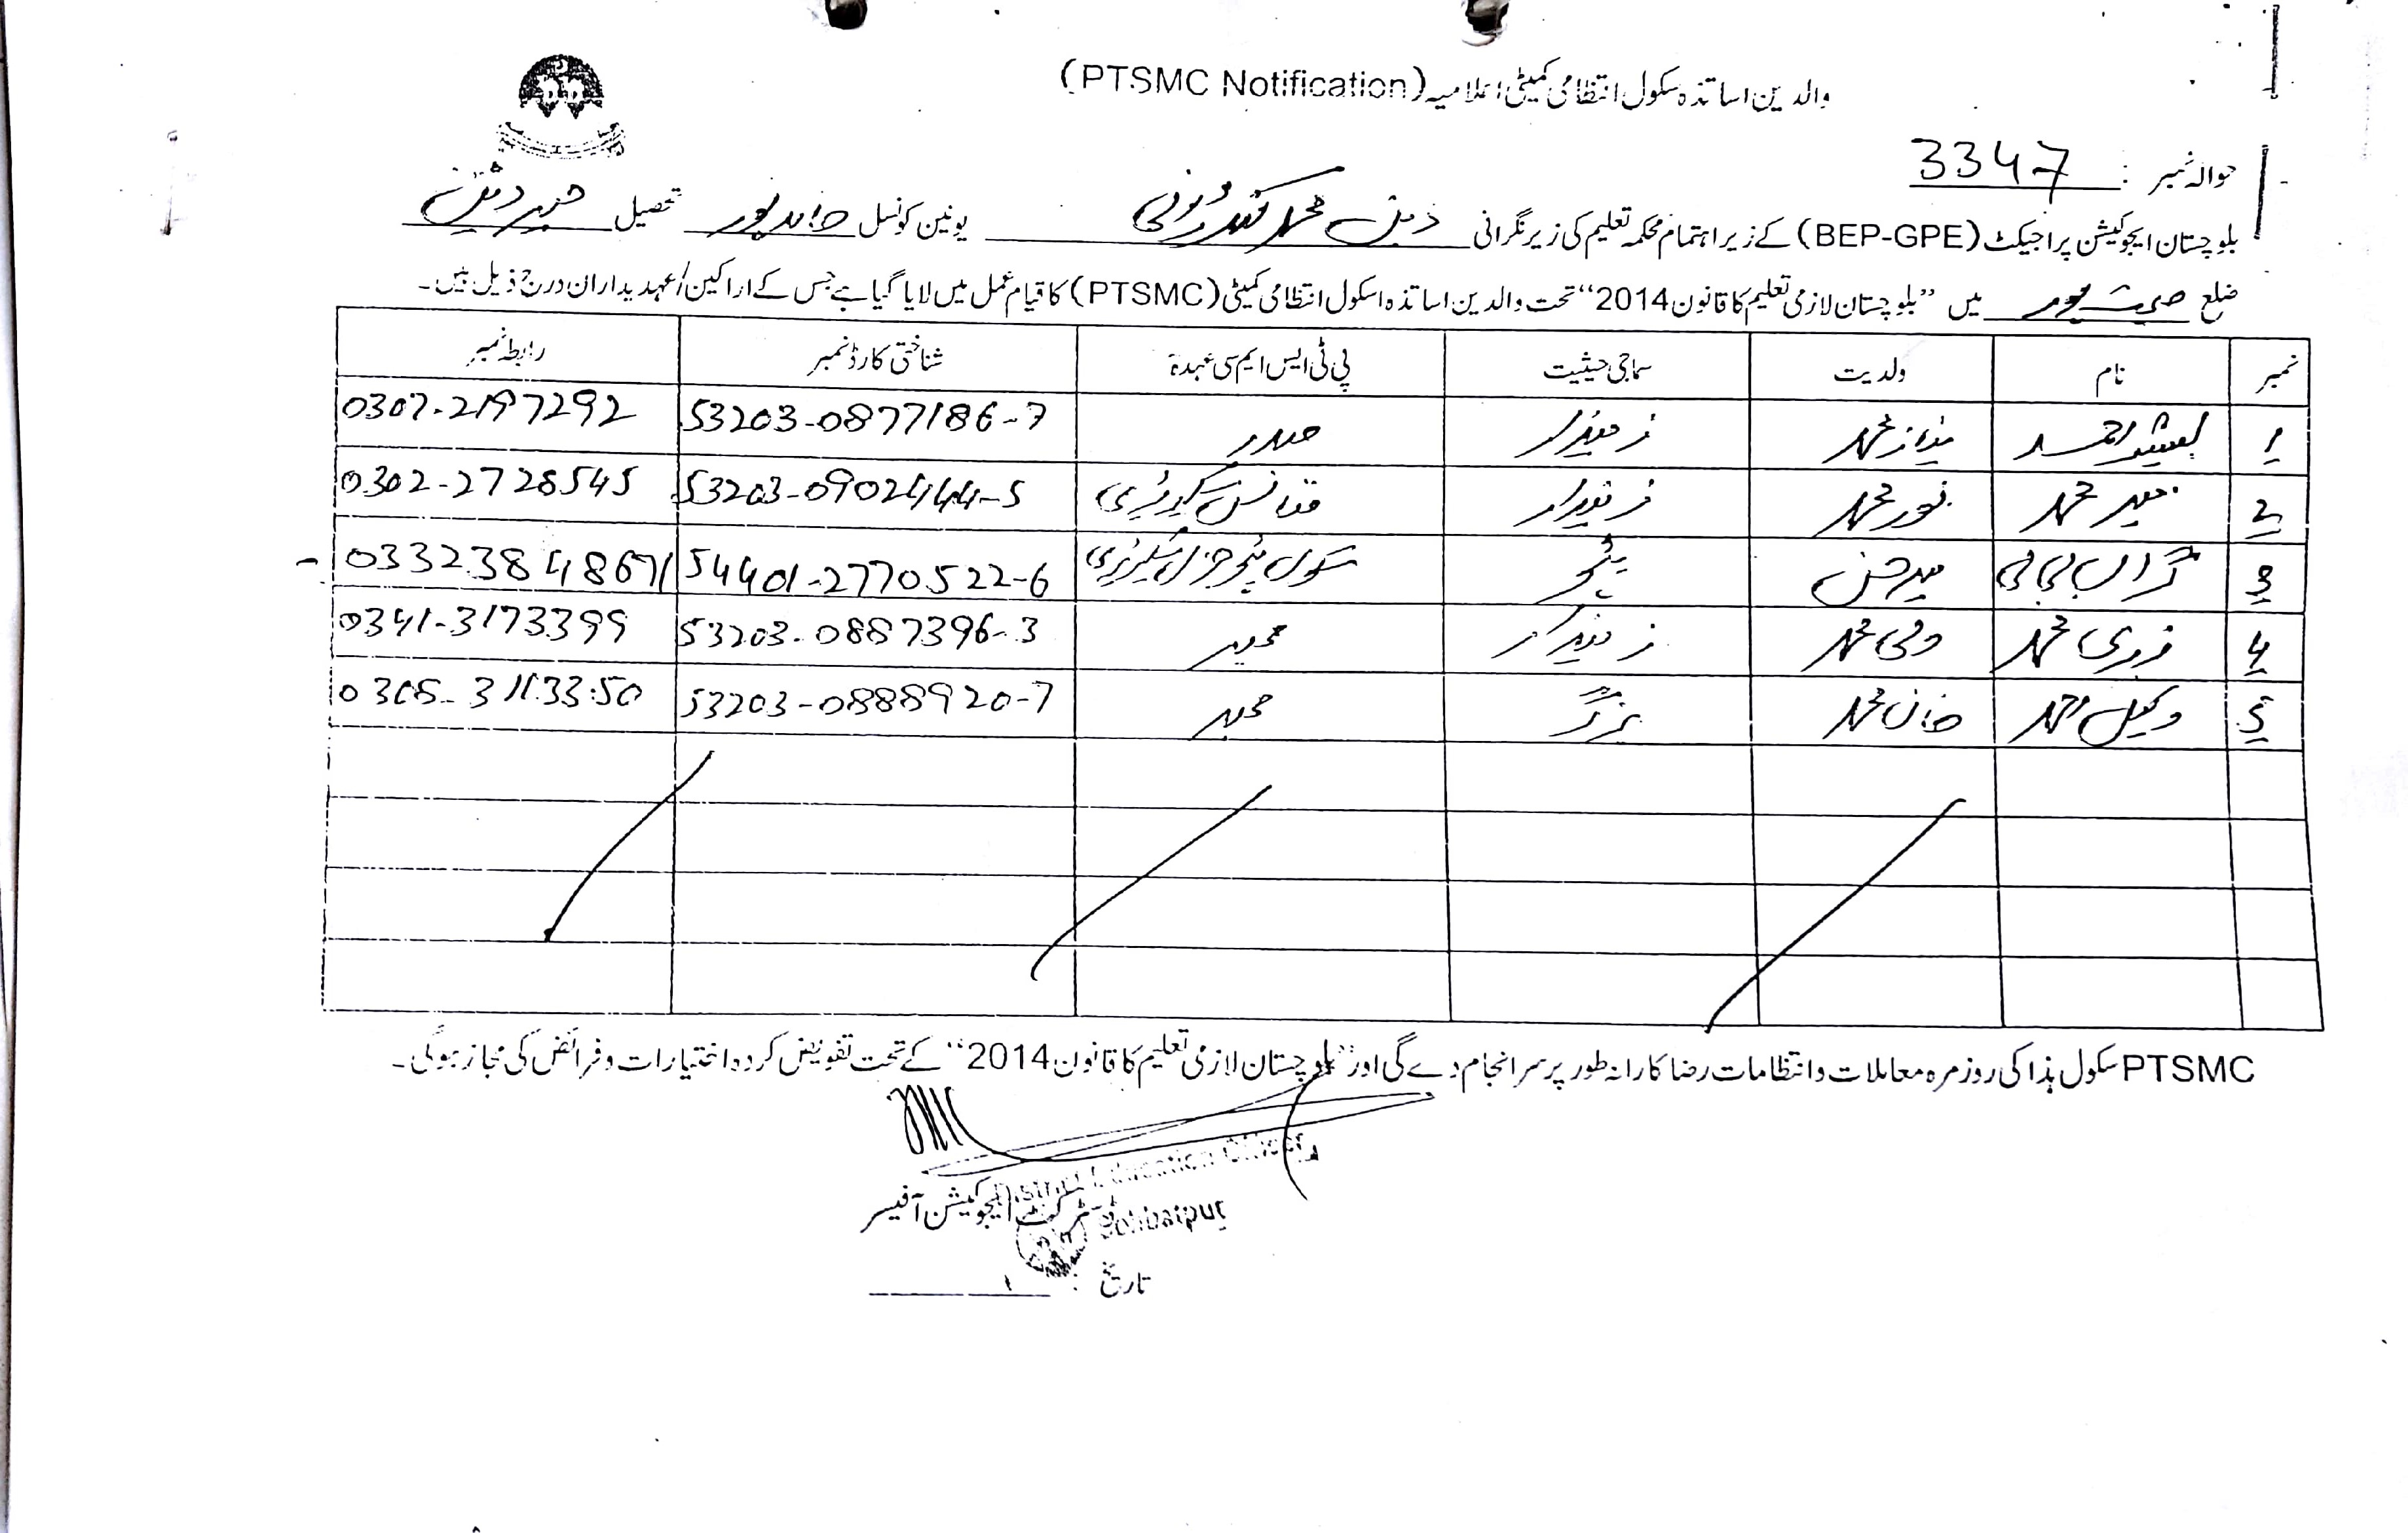 والدین اساتذہ سکول انتظامی کمیٹی اعلامیہ (PTSMC Notification)
حوالہ نمبر : 3347
بلوچستان ایجوکیشن پراجیکٹ (BEP-GPE) کے زیر اہتمام محکمہ تعلیم کی زیر نگرانی دین محمد کندرانی یونین کونسل حامد پور تحصیل
ضلع صحبت پور میں "بلوچستان لازمی تعلیم کا قانون 2014" تحت والدین اساتذہ اسکول انتظامی کمیٹی (PTSMC) کا قیام عمل میں لایا گیا ہے جس کے اراکین/عہدیداران درج ذیل ہیں۔
نمبر نام ولدیت سماجی حیثیت پی ٹی ایس ایم سی عہدہ شناختی کارڈ نمبر رابطہ نمبر
1 بشیر احمد نیاز محمد زمیندار صدر 53203-0877186-7 0307-2197292
2 میر محمد نور محمد زمیندار فنانس سیکریٹری 53203-0902144-5 0302-2728545
3 گراں بی بی میر حسن ٹیچر سکول ٹیچر جنرل سیکریٹری 54401-2770522-6 03323848671
4 محمد ولی محمد زمیندار ممبر 53203-0887396-3 0341-3173399
5 وکیل احمد خان محمد بزگر ممبر 53203-0888920-7 0308-3113350
PTSMC سکول ہذا کی روزمرہ معاملات و انتظامات رضا کارانہ طور پر سر انجام دے گی اور "بلوچستان لازمی تعلیم کا قانون 2014" کے تحت تفویض کردہ اختیارات و فرائض کی مجاز ہوگی۔
District Education Officer
ڈسٹرکٹ ایجوکیشن آفیسر
Sohbatpur
تاریخ :